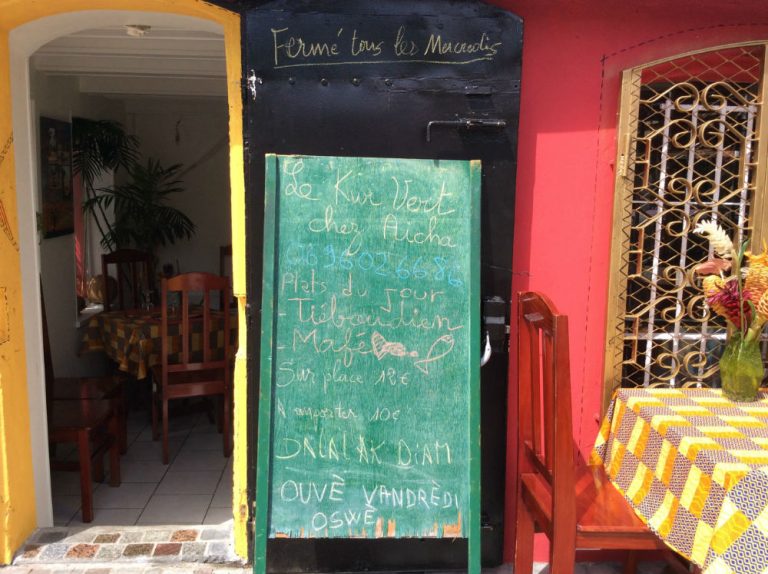 Fermé tous les Mercredis
Le Kwr Vert
chez Aïcha
0696026686
Plats du jour
- Tiéboudien
- Mafé
Sur place 12€
A emporter 10€
JALALAK DIAM
OUVÈ VANDRÈDI
OSWÈ